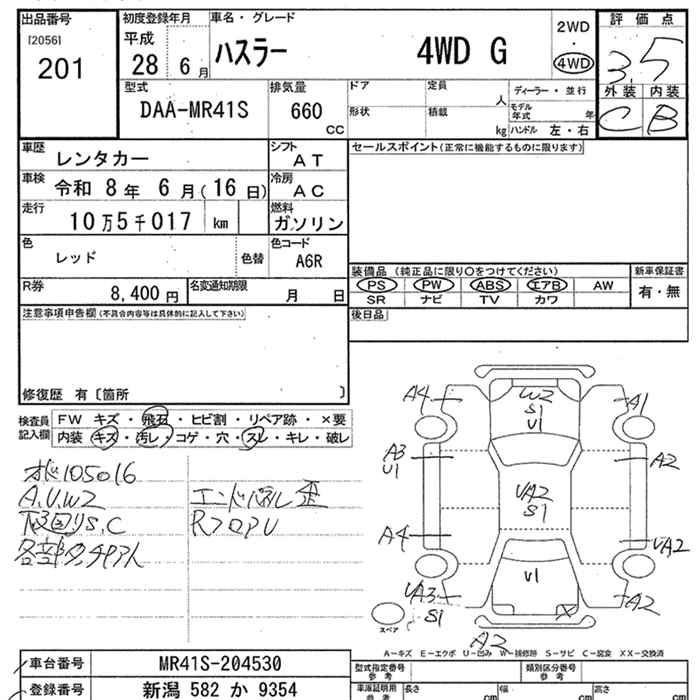 出品番号
[2056]
201
初度登録年月
平成
28 6 月
車名・グレード
ハスラー 4WD G
2WD
・
4WD
評価点
3.5
外装 内装
C B
型式
DAA-MR41S
排気量
660
CC
ドア
定員
人
形状
積載
kg
ディーラー・並行
モデル年式 年
ハンドル 左・右
車歴
レンタカー
シフト
AT
車検
令和 8 年 6 月(16 日)
冷房
AC
走行
10 万 5 千 017 km
燃料
ガソリン
色
レッド
色替
色コード
A6R
R券
8,400 円
名変通知期限
月 日
セールスポイント(正常に機能するものに限ります)
装備品 (純正品に限り○をつけてください)
PS PW ABS エアB AW
SR ナビ TV カワ
新車保証書
有・無
後日品
注意事項申告欄(不具合内容等は具体的に記入して下さい)
修復歴 有〔箇所 〕
検査員記入欄
FW キズ・飛石・ヒビ割・リペア跡・×要
内装 キズ・汚レ・コゲ・穴・スレ・キレ・破レ
105016
A.U.W2
下回りS.C
エンドパネル歪
RフロアU
A4
W2
S1
U1
A1
A3
U1
A2
UA2
S1
A4
UA2
U1
UA3
S1
X
A2
A2
スペア
A-キズ E-エクボ U-凹み W-補修跡 S-サビ C-腐食 XX-交換済
車台番号
MR41S-204530
登録番号
新潟 582 か 9354
型式指定番号
参考
類別区分番号
参考
車庫証明用
参考
長さ
cm
幅
cm
高さ
cm